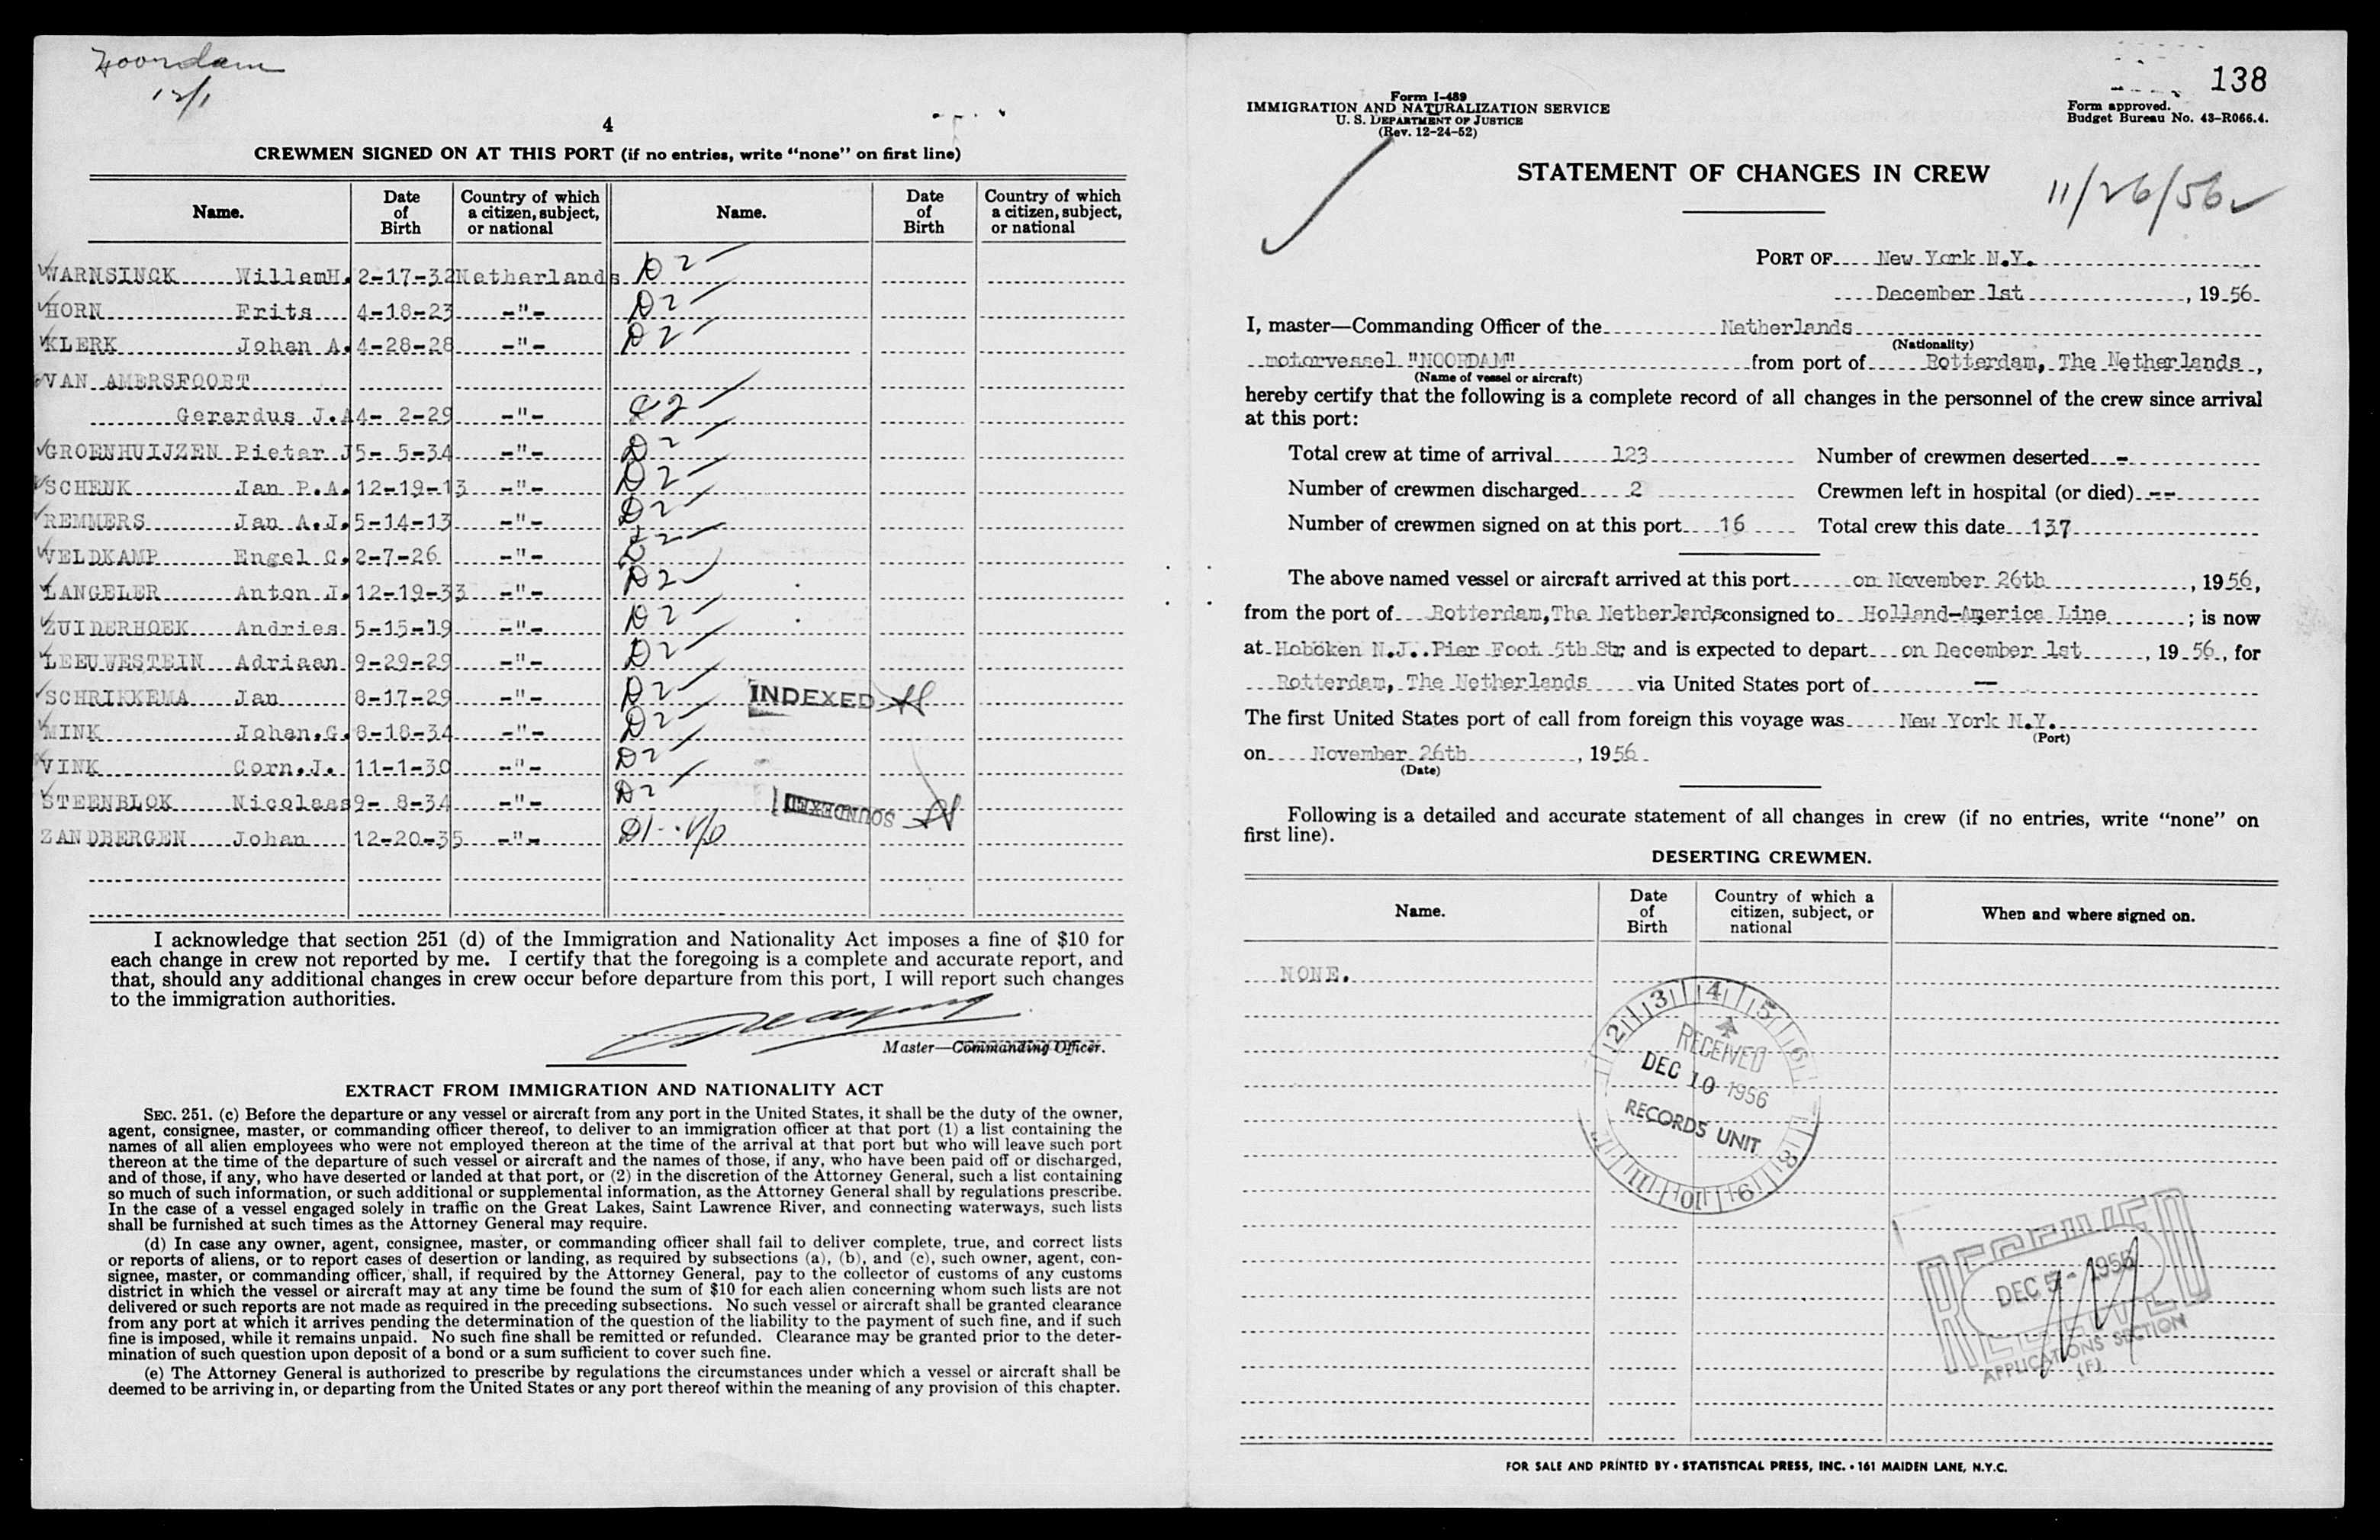 Noordam
12/1
4
CREWMEN SIGNED ON AT THIS PORT (if no entries, write “none” on first line)
Name. Date of Birth Country of which a citizen, subject, or national Name. Date of Birth Country of which a citizen, subject, or national
WARNSINCK WillemH. 2-17-32 Netherlands D2
HORN Frits 4-18-23 -"- D2
KLERK Johan A. 4-28-28 -"- D2
VAN AMERSFOORT
Gerardus J.A 4- 2-29 -"- D2
GROENHUIJZEN Pieter J 5- 5-34 -"- D2
SCHENK Jan P.A. 12-19-13 -"- D2
REMMERS Jan A.J. 5-14-13 -"- D2
VELDKAMP Engel C. 2-7-26 -"- D2
LANGELER Anton J. 12-19-33 -"- D2
ZUIDERHOEK Andries 5-15-19 -"- D2
LEEUWESTEIN Adriaan 9-29-29 -"- D2
SCHRIKKEMA Jan 8-17-29 -"- D2 INDEXED
MINK Johan.G. 8-18-34 -"- D2
VINK Corn.J. 11-1-30 -"- D2
STEENBLOK Nicolaas 9- 8-34 -"- D2 SOUNDEXED
ZANDBERGEN Johan 12-20-35 -"- D1
I acknowledge that section 251 (d) of the Immigration and Nationality Act imposes a fine of $10 for
each change in crew not reported by me. I certify that the foregoing is a complete and accurate report, and
that, should any additional changes in crew occur before departure from this port, I will report such changes
to the immigration authorities.
Master—Commanding Officer.
EXTRACT FROM IMMIGRATION AND NATIONALITY ACT
SEC. 251. (c) Before the departure or any vessel or aircraft from any port in the United States, it shall be the duty of the owner,
agent, consignee, master, or commanding officer thereof, to deliver to an immigration officer at that port (1) a list containing the
names of all alien employees who were not employed thereon at the time of the arrival at that port but who will leave such port
thereon at the time of the departure of such vessel or aircraft and the names of those, if any, who have been paid off or discharged,
and of those, if any, who have deserted or landed at that port, or (2) in the discretion of the Attorney General, such a list containing
so much of such information, or such additional or supplemental information, as the Attorney General shall by regulations prescribe.
In the case of a vessel engaged solely in traffic on the Great Lakes, Saint Lawrence River, and connecting waterways, such lists
shall be furnished at such times as the Attorney General may require.
(d) In case any owner, agent, consignee, master, or commanding officer shall fail to deliver complete, true, and correct lists
or reports of aliens, or to report cases of desertion or landing, as required by subsections (a), (b), and (c), such owner, agent, con-
signee, master, or commanding officer, shall, if required by the Attorney General, pay to the collector of customs of any customs
district in which the vessel or aircraft may at any time be found the sum of $10 for each alien concerning whom such lists are not
delivered or such reports are not made as required in the preceding subsections. No such vessel or aircraft shall be granted clearance
from any port at which it arrives pending the determination of the question of the liability to the payment of such fine, and if such
fine is imposed, while it remains unpaid. No such fine shall be remitted or refunded. Clearance may be granted prior to the deter-
mination of such question upon deposit of a bond or a sum sufficient to cover such fine.
(e) The Attorney General is authorized to prescribe by regulations the circumstances under which a vessel or aircraft shall be
deemed to be arriving in, or departing from the United States or any port thereof within the meaning of any provision of this chapter.
138
Form I-489
IMMIGRATION AND NATURALIZATION SERVICE
U. S. DEPARTMENT OF JUSTICE
(Rev. 12-24-52)
Form approved.
Budget Bureau No. 43-R066.4.
STATEMENT OF CHANGES IN CREW
11/26/56
PORT OF New York N.Y.
December 1st, 1956
I, master—Commanding Officer of the Netherlands
(Nationality)
motorvessel "NOORDAM" from port of Rotterdam, The Netherlands,
(Name of vessel or aircraft)
hereby certify that the following is a complete record of all changes in the personnel of the crew since arrival
at this port:
Total crew at time of arrival 123 Number of crewmen deserted -
Number of crewmen discharged 2 Crewmen left in hospital (or died) --
Number of crewmen signed on at this port 16 Total crew this date 137
The above named vessel or aircraft arrived at this port on November 26th, 1956,
from the port of Rotterdam,The Netherlands consigned to Holland-America Line; is now
at Hoboken N.J..Pier Foot 5th Str and is expected to depart on December 1st, 1956, for
Rotterdam, The Netherlands via United States port of —
The first United States port of call from foreign this voyage was New York N.Y.
(Port)
on November 26th, 1956
(Date)
Following is a detailed and accurate statement of all changes in crew (if no entries, write “none” on
first line).
DESERTING CREWMEN.
Name. Date of Birth Country of which a citizen, subject, or national When and where signed on.
NONE.
2 3 4 5 6 8 9 10 11
RECEIVED
DEC 10 1956
RECORDS UNIT
RECEIVED
DEC 5 - 1956
APPLICATIONS SECTION
(F)
FOR SALE AND PRINTED BY • STATISTICAL PRESS, INC. • 161 MAIDEN LANE, N.Y.C.